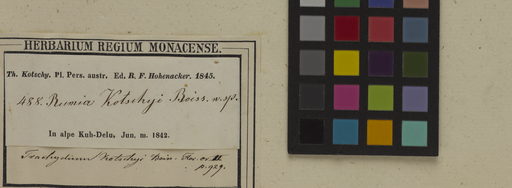 HERBARIUM REGIUM MONACENSE.
Th. Kotschy. Pl. Pers. austr. Ed. R. F. Hohenacker. 1845.
488. Rumia Kotschyi Boiss. n. sp.
In alpe Kuh-Delu, Jun. m. 1842.
Trachydium Kotschyi Boiss. Flor. or. II
p. 929.